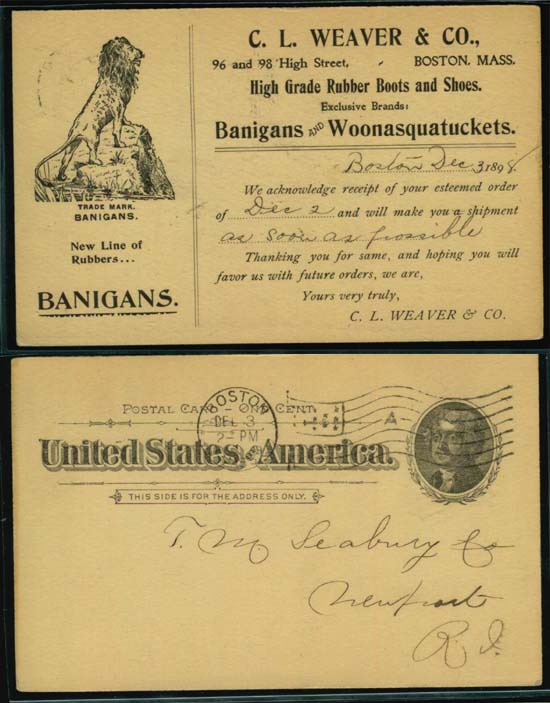 TRADE MARK.
BANIGANS.
New Line of
Rubbers...
BANIGANS.
C. L. WEAVER & CO.,
96 and 98 High Street, BOSTON, MASS.
High Grade Rubber Boots and Shoes.
Exclusive Brands:
Banigans AND Woonasquatuckets.
Boston Dec 3 1898
We acknowledge receipt of your esteemed order
of Dec 2 and will make you a shipment
as soon as possible
Thanking you for same, and hoping you will
favor us with future orders, we are,
Yours very truly,
C. L. WEAVER & CO.
POSTAL CARD – ONE CENT
BOSTON
DEC 3
2 PM
A
United States of America.
THIS SIDE IS FOR THE ADDRESS ONLY.
T. M Seabury Co
Newport
R. I.